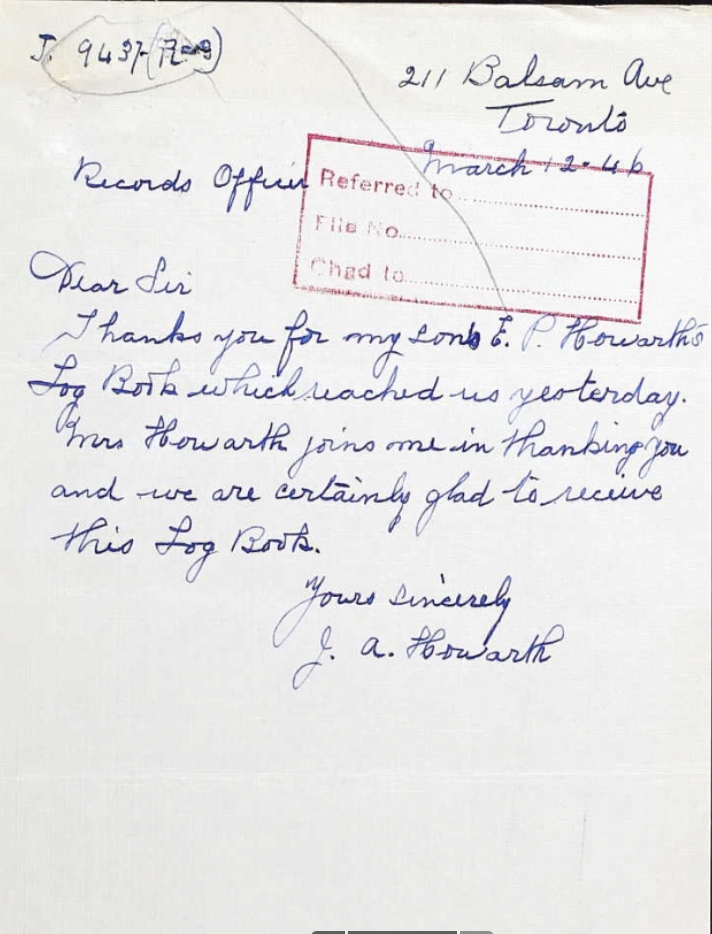 J. 9437-(R-3)
211 Balsam Ave
Toronto
March 12-46
Records Officer
Referred to
File No.
Chgd to
Dear Sir
Thanks you for my son's E. P. Howarth's
Log Book which reached us yesterday.
Mrs Howarth joins me in thanking you
and we are certainly glad to receive
this Log Book.
Yours sincerely
J. A. Howarth